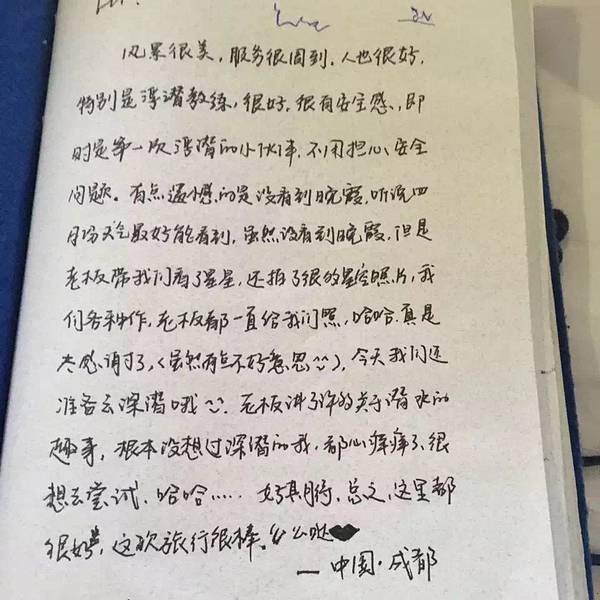 风景很美，服务很周到，人也很好，
特别是浮潜教练，很好，很有安全感，即
时是第一次浮潜的小伙伴，不用担心安全
问题。有点遗憾的是没看到晚霞，听说四
月份天气最好能看到，虽然没看到晚霞，但是
老板带我们看了星星，还拍了很多星空照片，我
们各种作，老板都一直给我们照，哈哈，真是
太感谢了，（虽然有点不好意思），今天我们还
准备去深潜哦 老板讲了许多关于潜水的
趣事，根本没想过深潜的我，都心痒痒了，很
想去尝试，哈哈…… 好期待，总之，这里都
很好，这次旅行很棒。么么哒♥
— 中国·成都